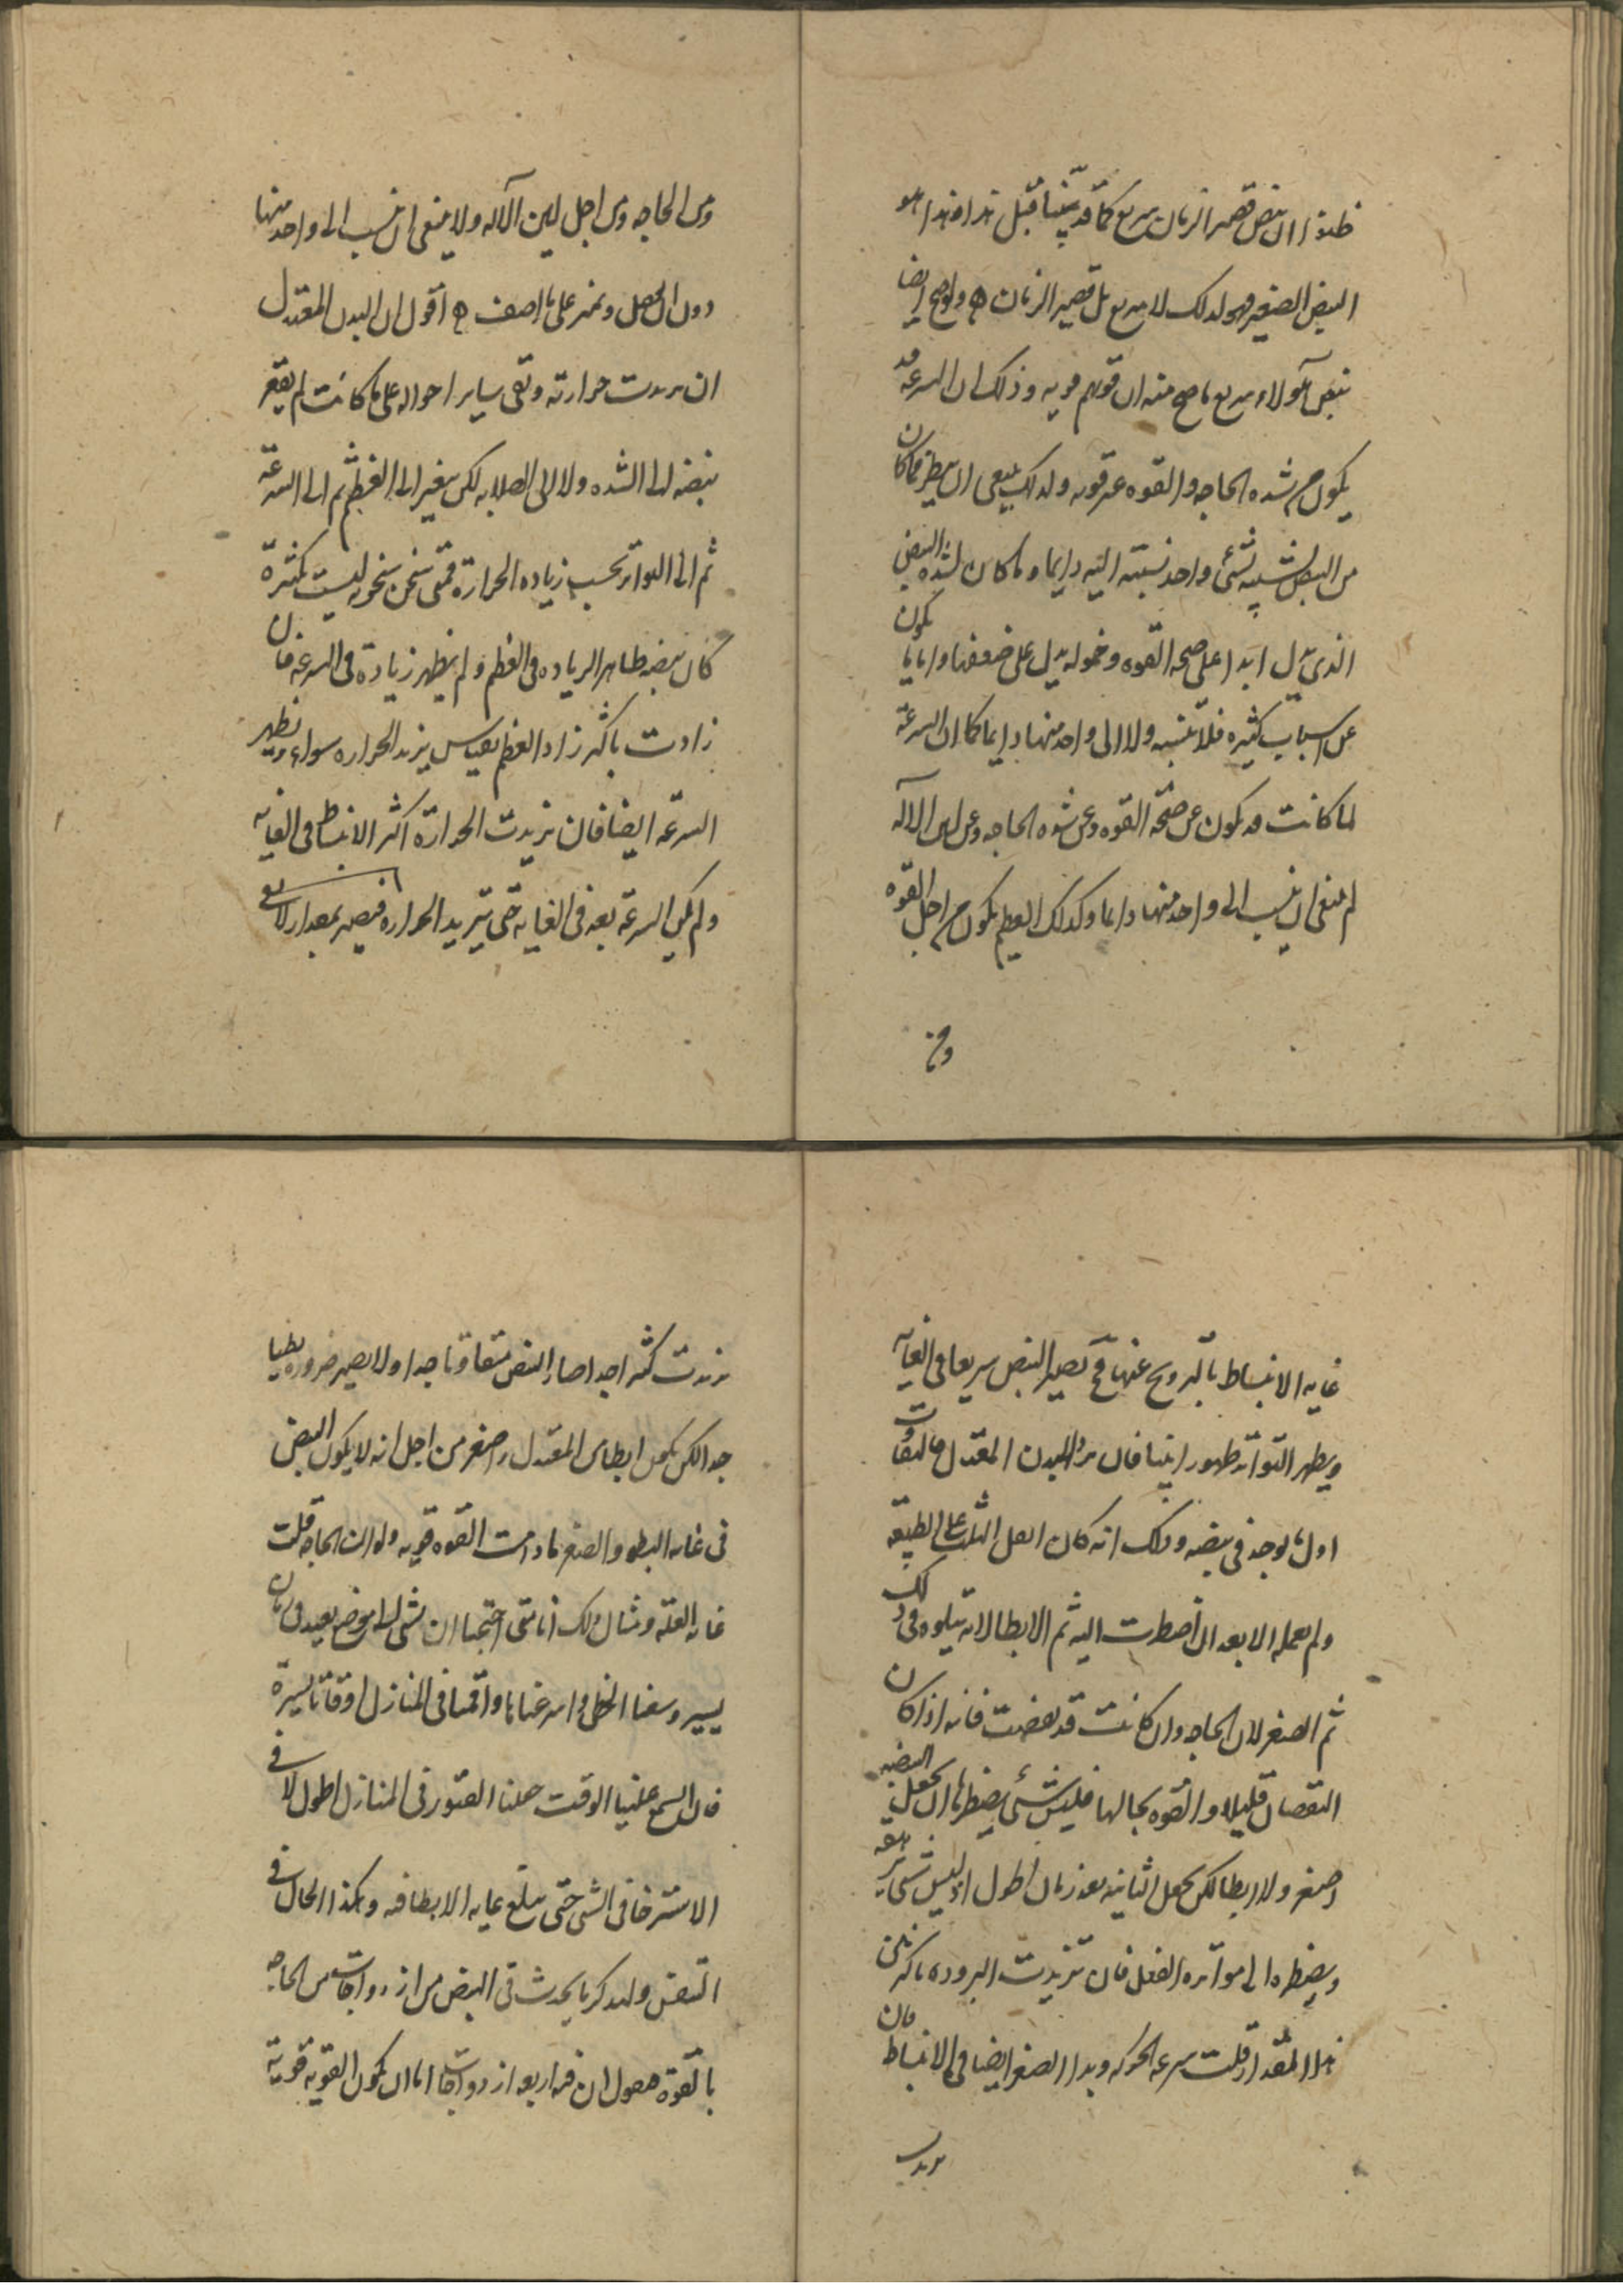 ظنوا ان نبض قصير الزمان سريع كما قد بينا قبل هذا وهذا هو
النبض الصغير فهو لذلك لا سريع بل قصير الزمان ولو صح ايضا
نبض هولاء سريع ما صح منه ان قوتهم قويه وذلك ان السرعه قد
يكون من شده الحاجه والقوه غير قويه ولذلك ينبغي ان ينظر فما كان
من النبض نسبته لشئ واحد نسبته اليه دايما وما كان لشده النبض
الذي يدل ابدا على صحه القوه وخموله يدل على ضعفها واما ما يكون
عن اسباب كثيره فلا تنسبه ولا الى واحد منها دايما كما ان السرعة
لما كانت قد يكون عن صحة القوه وعن شده الحاجه وعن لين الاله
لم ينبغ ان ينسب الى واحد منها دايما وكذلك العظم يكون من اجل القوه
ومن
ومن الحاجه ومن اجل لين الآله ولا ينبغي ان ينسب الى واحد منها
دون ان يفصل ويميز على ما اصف اقول ان البدن المعتدل
ان تزيدت حرارته وبقى ساير احواله على ما كانت لم يتغير
نبضه الى الشده ولا الى الصلابه لكن يتغير الى العظم ثم الى السرعة
ثم الى التواتر بحسب زياده الحرارة فمتى سخن سخونه ليست بكثيرة
كان نبضه ظاهر الزياده في العظم ولم يظهر زيادة في السرعه فان
زادت باكثر زاد العظم بقياس تزيد الحراره سواء ويظهر
السرعه ايضا فان تزيدت الحرارة اكثر الانبساط في الغايه
ولم يكن السرعة بعد في الغايه حتى تتزيد الحراره فيصير بمقدار لا يفي
غايه الانبساط بالترويح عنها فح يصير النبض سريعا في الغايه
ويظهر التواتر ظهورا بينا فان برد البدن المعتدل فالتفاوت
اول ما يوجد في نبضه وذلك انه كان اقل الثلث على الطبيعه
ولم تعمله الا بعد ان اضطرت اليه ثم الابطا لانه يتلوه في ذلك
ثم الصغر لان الحاجه وان كانت قد نقصت فانه اذا كان
النقصان قليلا والقوه بحالها فليس شئ يضطرها ان تجعل النبضه
اصغر ولا ابطا لكن تجعل الثانيه بعد زمان اطول اذ ليس شئ يرهقه
ويضطره الى مواتره الفعل فان تزيدت البروده باكثر من
هذا المقدار قلت سرعه الحركه وبدا الصغر ايضا في الانبساط فان
تزيدت
تزيدت كثيرا جدا صار النبض متفاوتا جدا ولا يصير ضروره بطيا
جدا لكن يكون ابطا من المعتدل واصغر من اجل انه لا يكون النبض
في غايه البطو والصغر ما دامت القوه قويه ولو ان الحاجه قلت
غايه القله ومثال ذلك انا متى احتجنا ان نمشي الى موضع بعيد في زمان
يسير وسعنا الخطى واسرعناها واقمنا في المنازل اوقاتا يسيرة
فان اتسع علينا الوقت جعلنا الفتور في المنازل اطول لا في
الاسترخا في المشي حتى يبلغ غايه الابطا فيه وهكذا الحال في
التنفس ولنذكر ما يحدث في النبض من ازدواجات من الحاجه
بالقوة فنقول ان فيه اربعه ازدواجات اما ان يكون القوية قوية